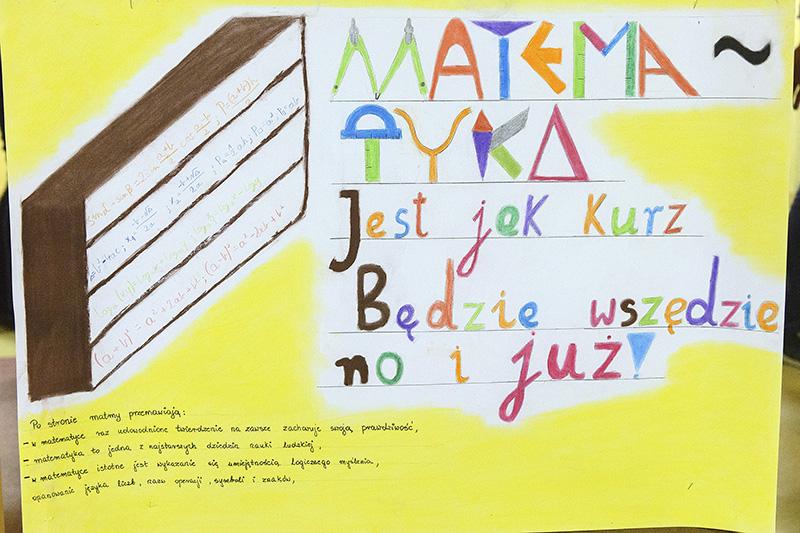 MATEMA~
TYKA
Jest jak kurz
Będzie wszędzie
no i już!
(a+b)² = a² + 2ab + b² ; (a-b)² = a² - 2ab + b²
Po stronie matmy przemawiają:
- w matematyce raz udowodnione twierdzenie na zawsze zachowuje swoją prawdziwość,
- matematyka to jedna z najstarszych dziedzin nauki ludzkiej,
- w matematyce istotne jest wykazanie się umiejętnością logicznego myślenia,
opanowanie języka liczb, nazw operacji, symboli i znaków,